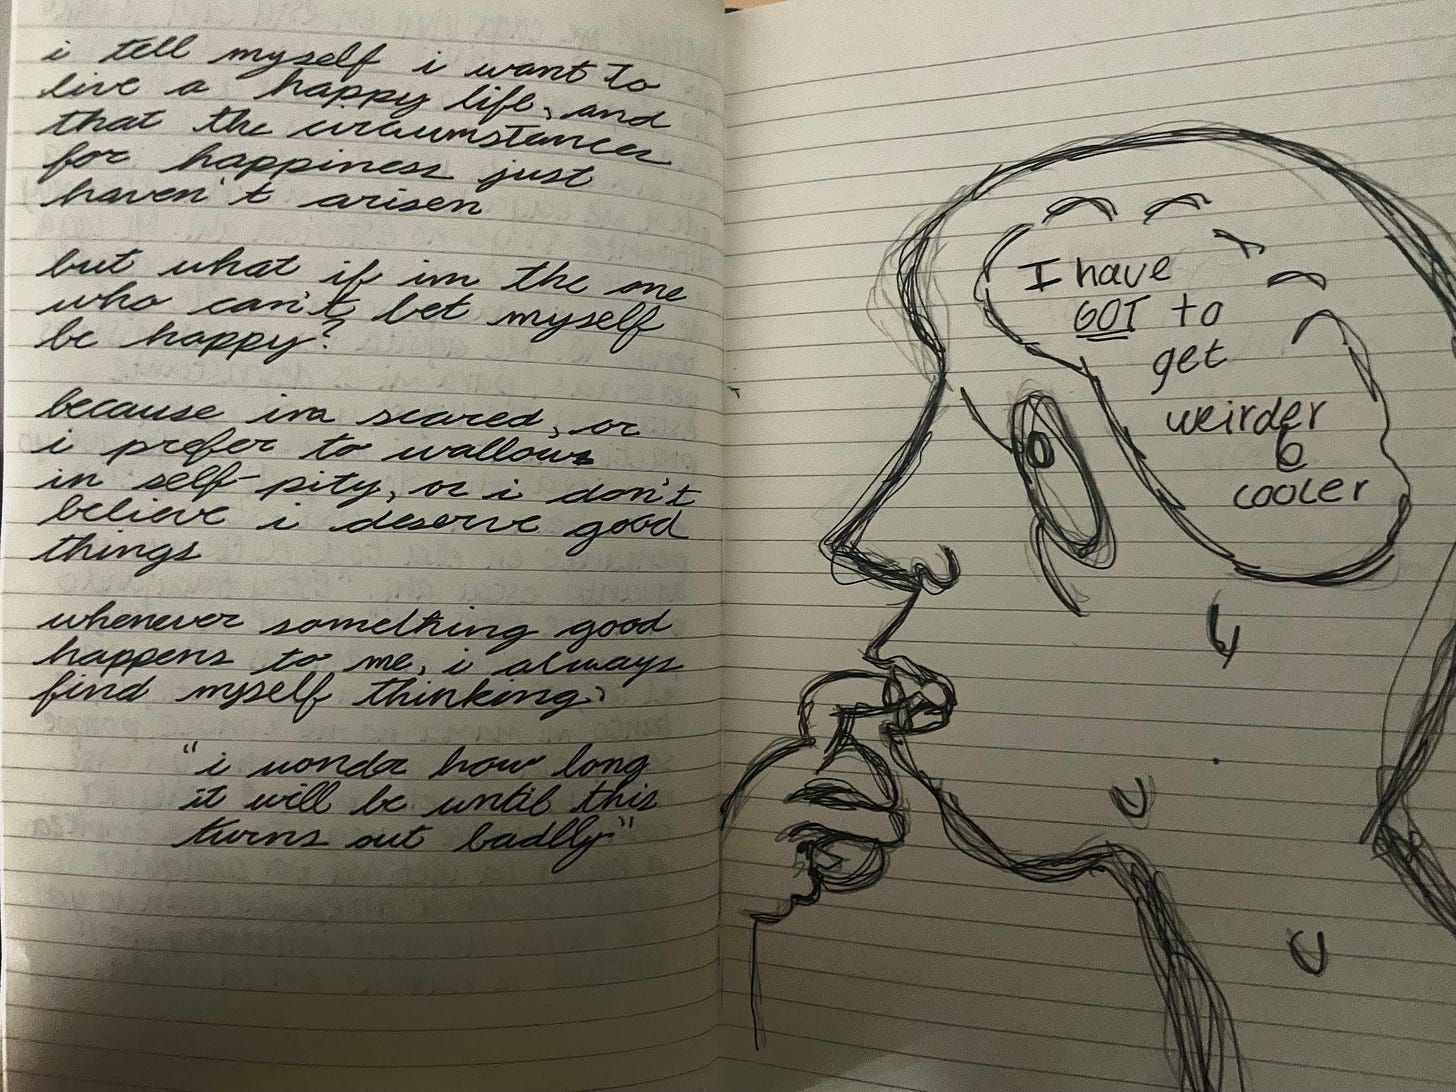 i tell myself i want to
live a happy life, and
that the circumstances
for happiness just
haven't arisen
but what if im the one
who can't let myself
be happy?
because im scared, or
i prefer to wallow
in self-pity, or i don't
believe i deserve good
things
whenever something good
happens to me, i always
find myself thinking,
"i wonder how long
it will be until this
turns out badly"
I have
GOT to
get
weirder
&
cooler